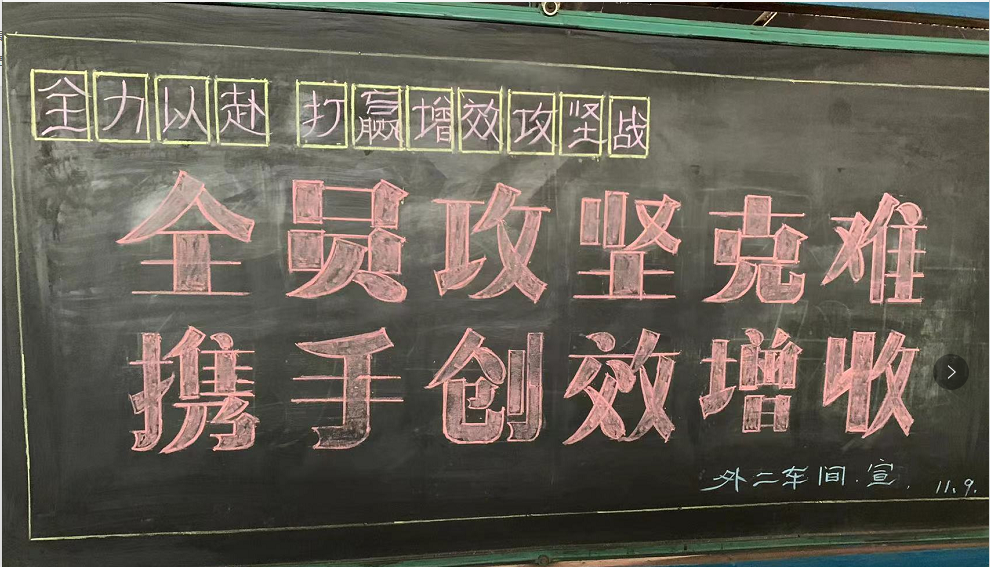 全力以赴 打赢增效攻坚战
全员攻坚克难
携手创效增收
外二车间.宣.
11.9.